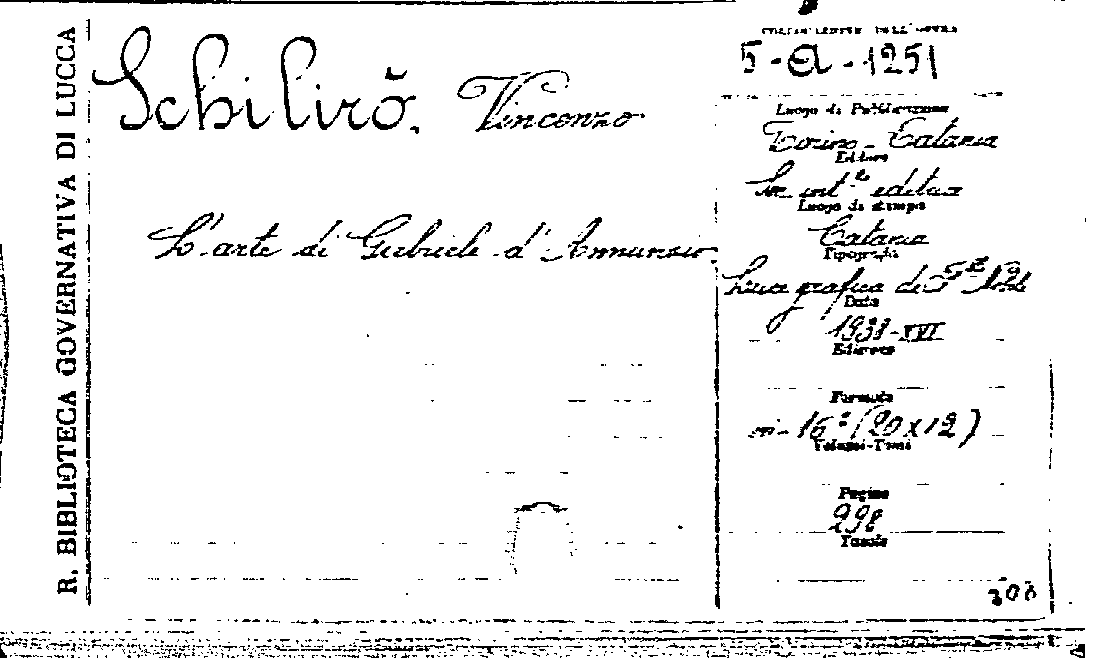 R. BIBLIOTECA GOVERNATIVA DI LUCCA
Schilirò, Vincenzo
L'arte di Gabriele d'Annunzio.
DELL'OPERA
5-A-1251
Luogo di Pubblicazione
Torino - Catania
Editore
Soc. int.le editrice
Luogo di stampa
Catania
Tipografia
grafica di
Data
1938-XVI
Edizione
Formato
in-16° (20x12)
Volumi-Tomi
Pagine
298
Tavole
308